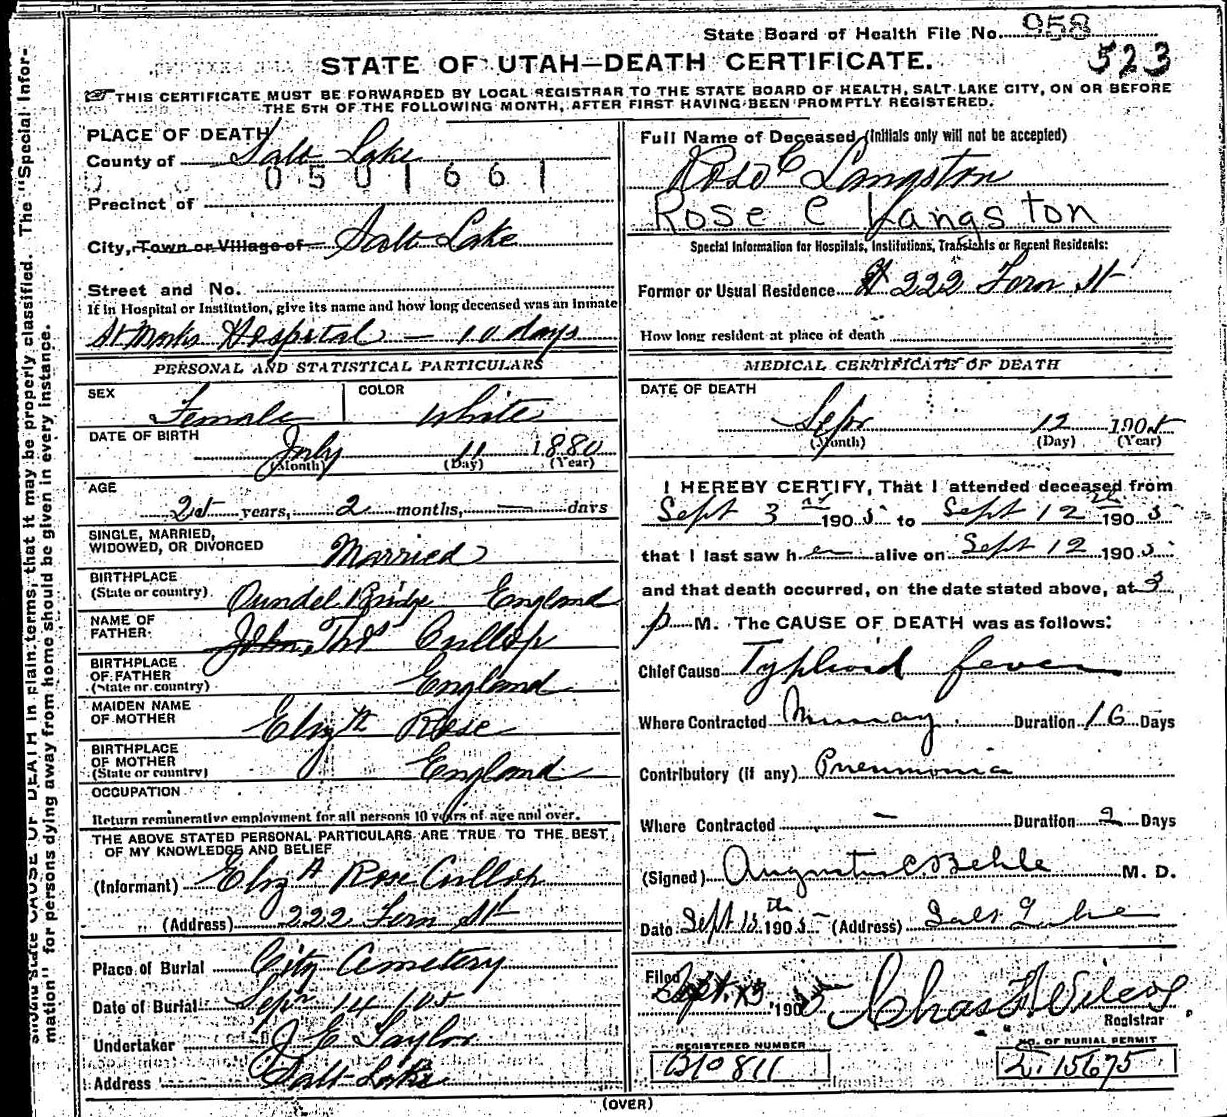 State Board of Health File No. 958
523
STATE OF UTAH—DEATH CERTIFICATE.
THIS CERTIFICATE MUST BE FORWARDED BY LOCAL REGISTRAR TO THE STATE BOARD OF HEALTH, SALT LAKE CITY, ON OR BEFORE
THE 5TH OF THE FOLLOWING MONTH, AFTER FIRST HAVING BEEN PROMPTLY REGISTERED.
PLACE OF DEATH
County of Salt Lake
0501661
Precinct of
City, Town or Village of Salt Lake
Street and No.
If in Hospital or Institution, give its name and how long deceased was an inmate
St Marks Hospital — 10 days
PERSONAL AND STATISTICAL PARTICULARS
SEX Female COLOR White
DATE OF BIRTH July 11 1880
(Month) (Day) (Year)
AGE
25 years, 2 months, — days
SINGLE, MARRIED,
WIDOWED, OR DIVORCED Married
BIRTHPLACE
(State or country) Oundel Bridge England
NAME OF
FATHER John Thos Cullop
BIRTHPLACE
OF FATHER
(State or country) England
MAIDEN NAME
OF MOTHER Elizth Rose
BIRTHPLACE
OF MOTHER
(State or country) England
OCCUPATION
Return remunerative employment for all persons 10 years of age and over.
THE ABOVE STATED PERSONAL PARTICULARS ARE TRUE TO THE BEST
OF MY KNOWLEDGE AND BELIEF
(Informant) Eliz A Rose Cullop
(Address) 222 Fern St
Place of Burial City Cemetery
Date of Burial Sepr 14 105
Undertaker J E Taylor
Address Salt Lake
Full Name of Deceased (Initials only will not be accepted)
Rose C Langston
Rose C Langston
Special Information for Hospitals, Institutions, Transients or Recent Residents:
Former or Usual Residence 222 Fern St
How long resident at place of death
MEDICAL CERTIFICATE OF DEATH
DATE OF DEATH
Sepr 12 1905
(Month) (Day) (Year)
I HEREBY CERTIFY, That I attended deceased from
Sept 3 1905 to Sept 12th 1905
that I last saw her alive on Sept 12 1905
and that death occurred, on the date stated above, at 3
p M. The CAUSE OF DEATH was as follows:
Chief Cause Typhoid fever
Where Contracted Murray Duration 16 Days
Contributory (if any) Pneumonia
Where Contracted — Duration 2 Days
(Signed) Augustus C Behle M. D.
Date Sept 13th 1905 (Address) Salt Lake
Filed Sept. 13, 1905 Chas F Wilcox
Registrar
REGISTERED NUMBER
B10811
NO. OF BURIAL PERMIT
15675
(OVER)
should state CAUSE OF DEATH in plain terms, that it may be properly classified. The "Special Infor-
mation" for persons dying away from home should be given in every instance.